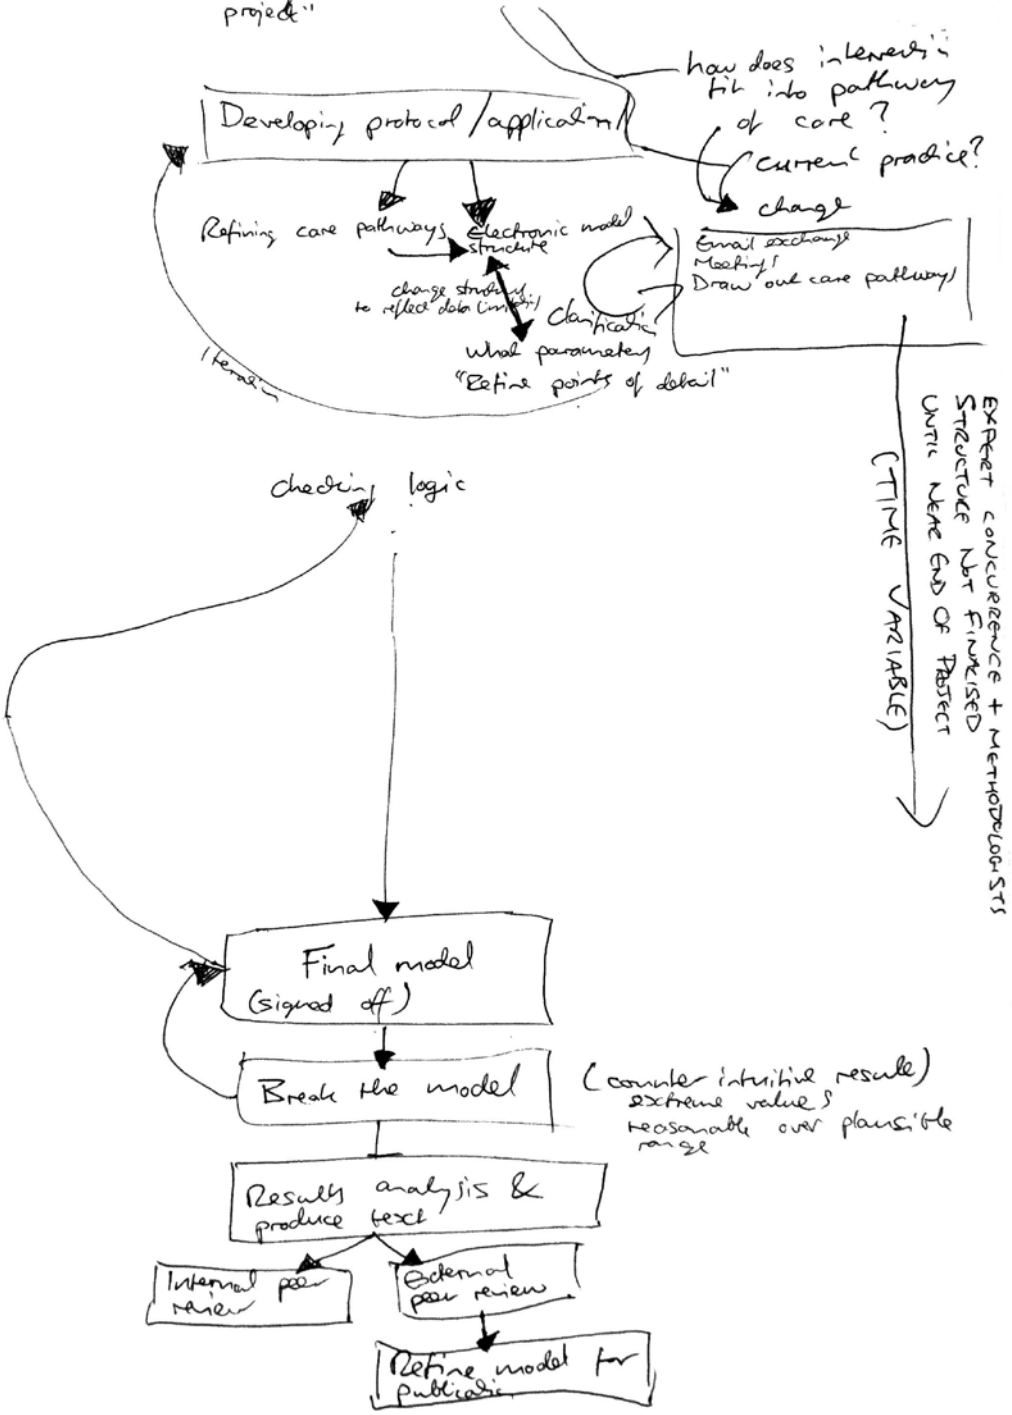 project"
how does intervention
fit into pathway
of care?
current practice?
change
Developing protocol/application
Refining care pathways
Electronic model
structure
Email exchange
Meetings
Draw out care pathways
change structure
to reflect data limitations
Clarification
What parameters
"Refine points of detail"
Iteration
EXPERT CONCURRENCE + METHODOLOGISTS
STRUCTURE NOT FINALISED
UNTIL NEAR END OF PROJECT
(TIME VARIABLE)
checking logic
Final model
(signed off)
Break the model
(counter intuitive result)
extreme values
reasonable over plausible
range
Results analysis &
produce text
Internal peer
review
External
peer review
Refine model for
publication